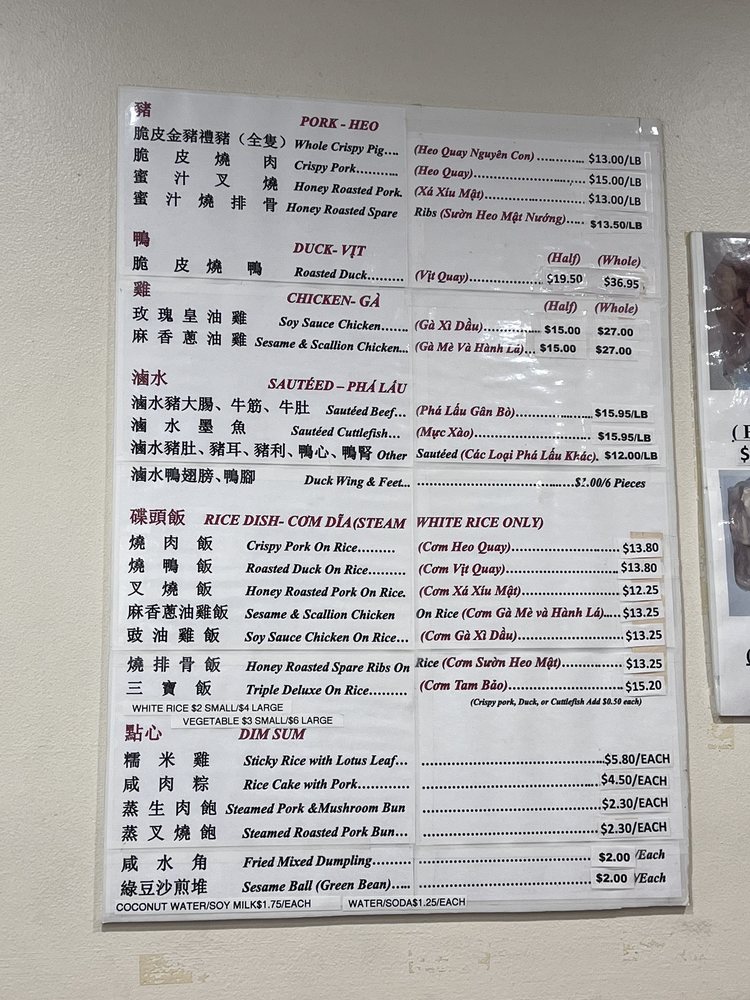 豬 PORK - HEO
脆皮金豬禮豬（全隻） Whole Crispy Pig.... (Heo Quay Nguyên Con) ............ $13.00/LB
脆皮燒肉 Crispy Pork........... (Heo Quay)............................ $15.00/LB
蜜汁叉燒 Honey Roasted Pork. (Xá Xíu Mật)......................... $13.00/LB
蜜汁燒排骨 Honey Roasted Spare Ribs (Sườn Heo Mật Nướng).... $13.50/LB
鴨 DUCK- VỊT (Half) (Whole)
脆皮燒鴨 Roasted Duck......... (Vịt Quay)................... $19.50 $36.95
雞 CHICKEN- GÀ (Half) (Whole)
玫瑰皇油雞 Soy Sauce Chicken....... (Gà Xì Dầu).............. $15.00 $27.00
麻香蔥油雞 Sesame & Scallion Chicken... (Gà Mè Và Hành Lá)... $15.00 $27.00
滷水 SAUTÉED – PHÁ LẤU
滷水豬大腸、牛筋、牛肚 Sautéed Beef... (Phá Lấu Gân Bò)................... $15.95/LB
滷水墨魚 Sautéed Cuttlefish... (Mực Xào)............................. $15.95/LB
滷水豬肚、豬耳、豬利、鴨心、鴨腎 Other Sautéed (Các Loại Phá Lấu Khác). $12.00/LB
滷水鴨翅膀、鴨腳 Duck Wing & Feet... .00/6 Pieces
碟頭飯 RICE DISH- CƠM DĨA(STEAM WHITE RICE ONLY)
燒肉飯 Crispy Pork On Rice......... (Cơm Heo Quay)........................... $13.80
燒鴨飯 Roasted Duck On Rice......... (Cơm Vịt Quay)............................ $13.80
叉燒飯 Honey Roasted Pork On Rice. (Cơm Xá Xíu Mật)........................ $12.25
麻香蔥油雞飯 Sesame & Scallion Chicken On Rice (Cơm Gà Mè và Hành Lá)..... $13.25
豉油雞飯 Soy Sauce Chicken On Rice... (Cơm Gà Xì Dầu).......................... $13.25
燒排骨飯 Honey Roasted Spare Ribs On Rice (Cơm Sườn Heo Mật)............... $13.25
三寶飯 Triple Deluxe On Rice......... (Cơm Tam Bảo)............................ $15.20
WHITE RICE $2 SMALL/$4 LARGE (Crispy pork, Duck, or Cuttlefish Add $0.50 each)
VEGETABLE $3 SMALL/$6 LARGE
點心 DIM SUM
糯米雞 Sticky Rice with Lotus Leaf... ............................................ $5.80/EACH
咸肉粽 Rice Cake with Pork............ ............................................ $4.50/EACH
蒸生肉飽 Steamed Pork &Mushroom Bun ............................................ $2.30/EACH
蒸叉燒飽 Steamed Roasted Pork Bun... ............................................ $2.30/EACH
咸水角 Fried Mixed Dumpling......... ............................................ $2.00 /Each
綠豆沙煎堆 Sesame Ball (Green Bean)..... ............................................ $2.00 /Each
COCONUT WATER/SOY MILK$1.75/EACH WATER/SODA$1.25/EACH